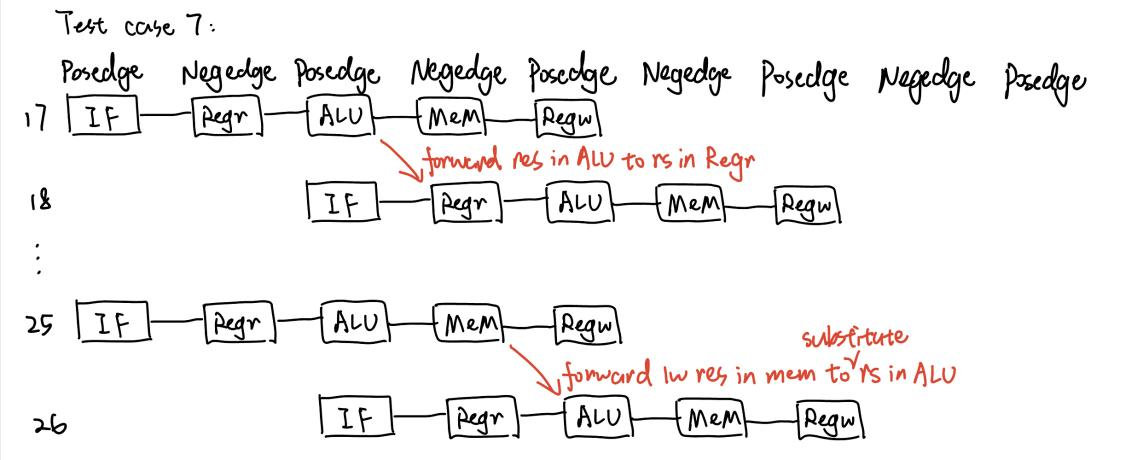 Test case 7:
Posedge Negedge Posedge Negedge Posedge Negedge Posedge Negedge Posedge
17 IF Regr ALU MeM Regw
forward res in ALU to rs in Regr
18 IF Regr ALU MeM Regw
25 IF Regr ALU MeM Regw
substitute
forward lw res in mem to rs in ALU
26 IF Regr ALU MeM Regw